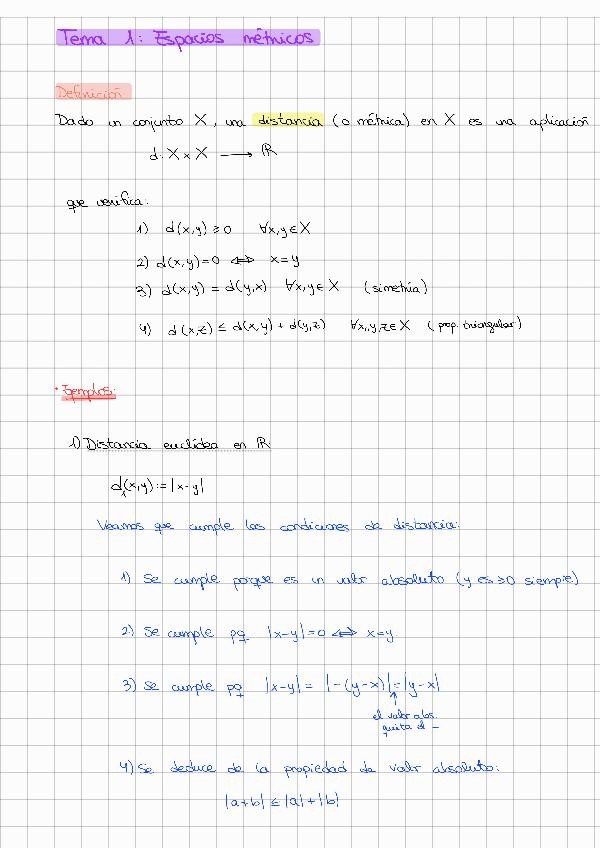 Tema 1: Espacios métricos
Definición
Dado un conjunto X, una distancia (o métrica) en X es una aplicación
d: X × X → ℝ
que verifica:
1) d(x,y) ≥ 0 ∀x,y ∈ X
2) d(x,y) = 0 ⟺ x=y
3) d(x,y) = d(y,x) ∀x,y ∈ X (simetría)
4) d(x,z) ≤ d(x,y) + d(y,z) ∀x,y,z ∈ X (prop. triangular)
• Ejemplos:
1) Distancia euclídea en ℝ
d₁(x,y) := |x-y|
Veamos que cumple las condiciones de distancia:
1) Se cumple porque es un valor absoluto (y es ≥0 siempre)
2) Se cumple pq |x-y|=0 ⟺ x=y
3) Se cumple pq |x-y| = |-(y-x)| = |y-x|
↑
el valor abs.
quita el -
4) Se deduce de la propiedad de valor absoluto:
|a+b| ≤ |a|+|b|